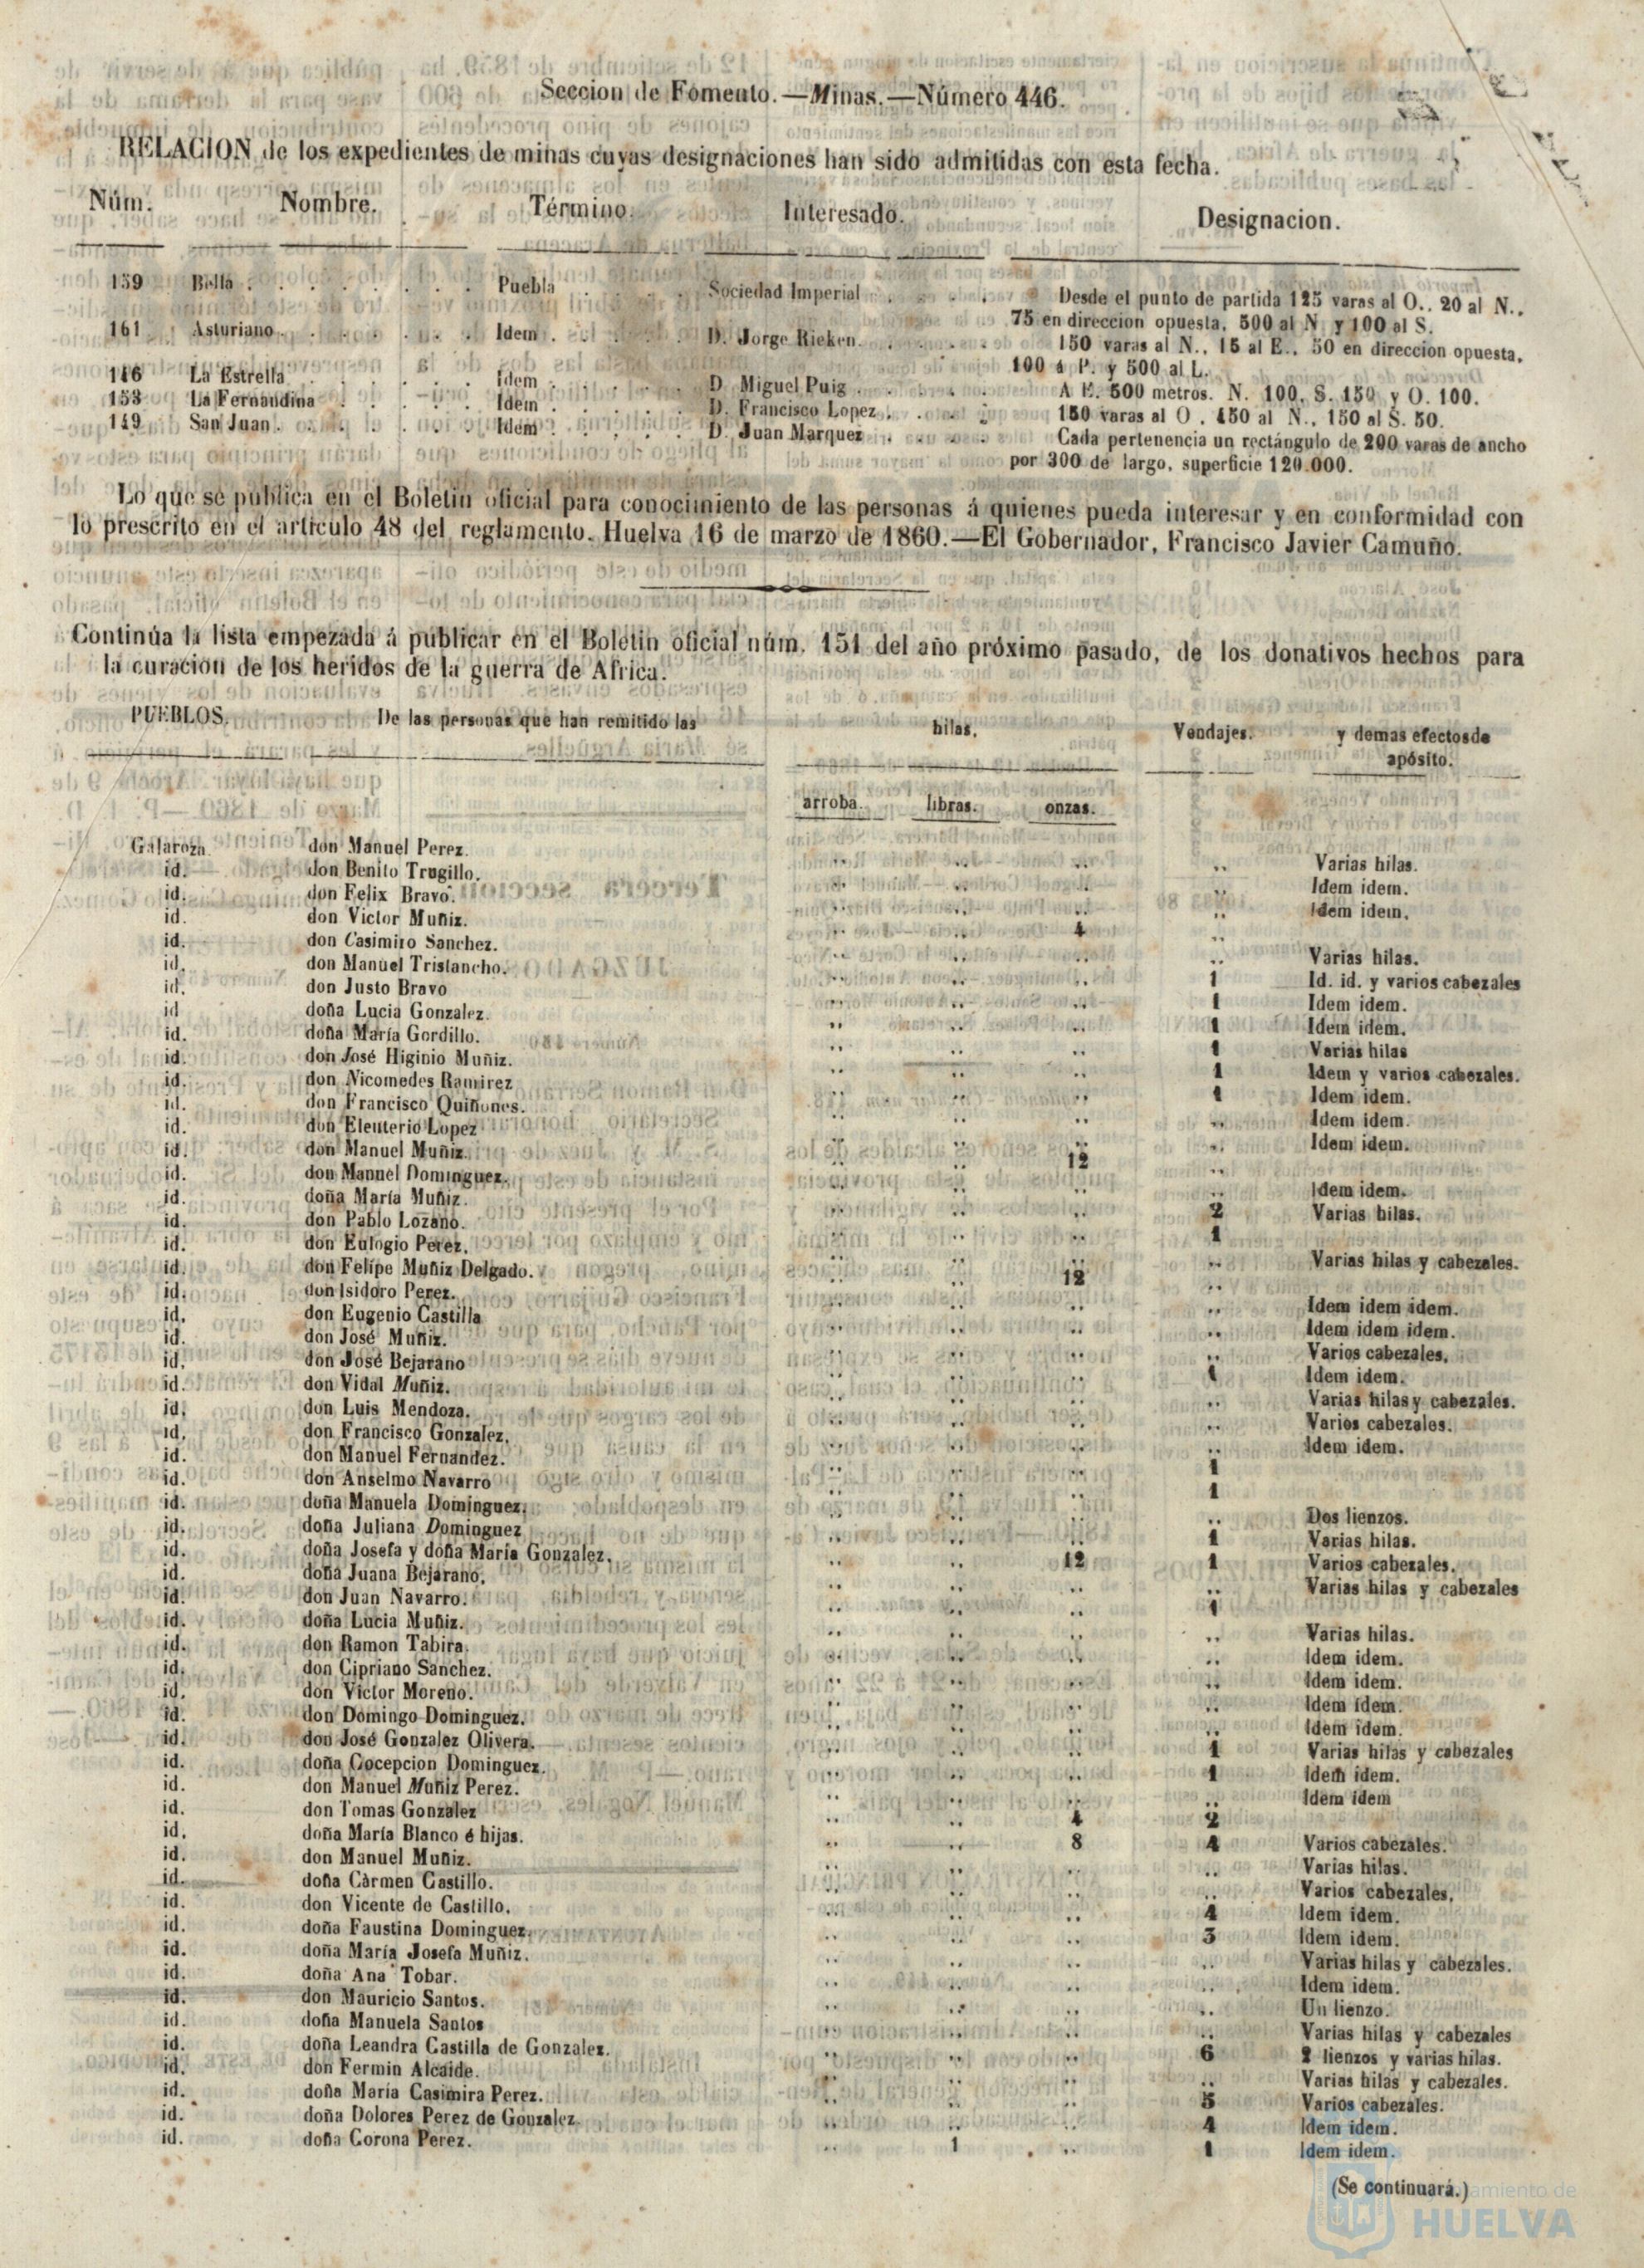 Seccion de Fomento.—Minas.—Número 446.
RELACION de los expedientes de minas cuyas designaciones han sido admitidas con esta fecha.
Núm. Nombre. Término. Interesado. Designacion.
159 Bella . . . . . . . Puebla . . . . . Sociedad Imperial . . . . Desde el punto de partida 125 varas al O., 20 al N.,
75 en direccion opuesta, 500 al N y 100 al S.
161 Asturiano . . . . . . . Idem . . . . . D. Jorge Rieken. . . . . 150 varas al N., 15 al E., 50 en direccion opuesta,
100 á P. y 500 al L.
146 La Estrella . . . . . . Idem . . . . . D Miguel Puig . . . . . A E. 500 metros. N. 100, S. 150 y O. 100.
153 La Fernandina . . . . . Idem . . . . . D. Francisco Lopez . . . . 150 varas al O . 450 al N., 150 al S. 50.
149 San Juan . . . . . . . Idem . . . . . D. Juan Marquez . . . . Cada pertenencia un rectángulo de 200 varas de ancho
por 300 de largo, superficie 120.000.
Lo que se publica en el Boletin oficial para conocimiento de las personas á quienes pueda interesar y en conformidad con
lo prescrito en el artículo 48 del reglamento. Huelva 16 de marzo de 1860.—El Gobernador, Francisco Javier Camuño.
Continúa la lista empezada á publicar en el Boletin oficial núm. 151 del año próximo pasado, de los donativos hechos para
la curacion de los heridos de la guerra de Africa.
PUEBLOS. De las personas que han remitido las hilas, Vendajes. y demas efectos de
apósito.
arroba. libras. onzas.
Galaroza don Manuel Perez. .. .. .. .. Varias hilas.
id. don Benito Trugillo. .. .. .. .. Idem idem.
id. don Felix Bravo. .. .. .. .. Idem idem.
id. don Victor Muñiz. .. .. 4 ..
id. don Casimiro Sanchez. .. .. .. .. Varias hilas.
id. don Manuel Tristancho. .. .. .. 1 Id. id. y varios cabezales
id. don Justo Bravo .. .. .. 1 Idem idem.
id doña Lucia Gonzalez. .. .. .. 1 Idem idem.
id. doña María Gordillo. .. .. .. 1 Varias hilas
id. don José Higinio Muñiz. .. .. .. 1 Idem y varios cabezales.
id. don Nicomedes Ramirez .. .. .. 1 Idem idem.
id. don Francisco Quiñones. .. .. .. .. Idem idem.
id. don Eleuterio Lopez .. .. .. .. Idem idem.
id. don Manuel Muñiz. .. .. 12 ..
id. don Manuel Dominguez. .. .. .. .. Idem idem.
id. doña María Muñiz. .. .. .. 2 Varias hilas.
id. don Pablo Lozano. .. .. .. 1
id. don Eulogio Perez. .. .. .. .. Varias hilas y cabezales.
id. don Felipe Muñiz Delgado. .. .. 12 ..
id. don Isidoro Perez. .. .. .. .. Idem idem idem.
id. don Eugenio Castilla .. .. .. .. Idem idem idem.
id. don José Muñiz. .. .. .. .. Varios cabezales.
id. don José Bejarano .. .. .. 1 Idem idem.
id. don Vidal Muñiz. .. .. .. .. Varias hilas y cabezales.
id. don Luis Mendoza. .. .. .. .. Varios cabezales.
id. don Francisco Gonzalez. .. .. .. .. Idem idem.
id. don Manuel Fernandez. .. .. .. 1
id. don Anselmo Navarro .. .. .. 1
id. doña Manuela Dominguez. .. .. .. .. Dos lienzos.
id. doña Juliana Dominguez .. .. .. 1 Varias hilas.
id. doña Josefa y doña María Gonzalez. .. .. 12 1 Varios cabezales.
id. doña Juana Bejarano. .. .. .. .. Varias hilas y cabezales
id. don Juan Navarro. .. .. .. 1
id. doña Lucia Muñiz. .. .. .. .. Varias hilas.
id. don Ramon Tabira. .. .. .. .. Idem idem.
id. don Cipriano Sanchez. .. .. .. .. Idem idem.
id. don Victor Moreno. .. .. .. .. Idem idem.
id. don Domingo Dominguez. .. .. .. .. Idem idem.
id. don José Gonzalez Olivera. .. .. .. 1 Varias hilas y cabezales
id. doña Cocepcion Dominguez. .. .. .. 1 Idem idem.
id. don Manuel Muñiz Perez. .. .. .. .. Idem idem
id. don Tomas Gonzalez .. .. 4 2
id. doña María Blanco é hijas. .. .. 8 4 Varios cabezales.
id. don Manuel Muñiz. .. .. .. .. Varias hilas.
id. doña Càrmen Castillo. .. .. .. .. Varios cabezales.
id. don Vicente de Castillo. .. .. .. 4 Idem idem.
id. doña Faustina Dominguez. .. .. .. 3 Idem idem.
id. doña María Josefa Muñiz. .. .. .. .. Varias hilas y cabezales.
id. doña Ana Tobar. .. .. .. .. Idem idem.
id. don Mauricio Santos. .. .. .. .. Un lienzo.
id. doña Manuela Santos .. .. .. .. Varias hilas y cabezales
id. doña Leandra Castilla de Gonzalez. .. .. .. 6 2 lienzos y varias hilas.
id. don Fermin Alcaide. .. .. .. .. Varias hilas y cabezales.
id. doña María Casimira Perez. .. .. .. 5 Varios cabezales.
id. doña Dolores Perez de Gonzalez. .. .. .. 4 Idem idem.
id. doña Corona Perez. .. 1 .. 1 Idem idem.
(Se continuará.)
HUELVA